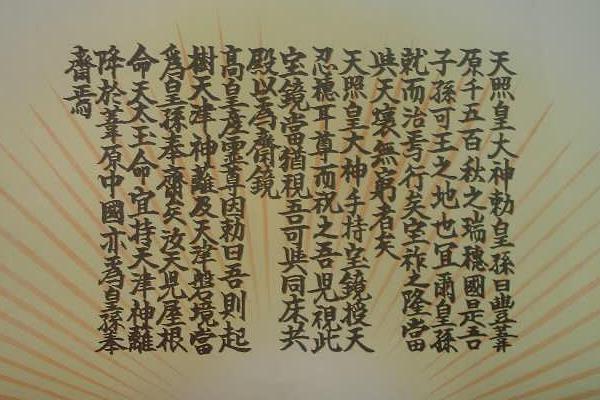 天照皇大神勅皇孫曰豊葦
原千五百秋之瑞穂國是吾
子孫可王之地也宜爾皇孫
就而治焉行矣宝祚之隆當
與天壌無窮者矣
天照皇大神手持宝鏡授天
忍穂耳尊而祝之吾児視此
宝鏡當猶視吾可與同床共
殿以為齋鏡
高皇産霊尊因勅曰吾則起
樹天津神籬及天津磐境當
為皇孫奉齋矣汝天児屋根
命天太玉命宜持天津神籬
降於葦原中國亦為皇孫奉
齋焉